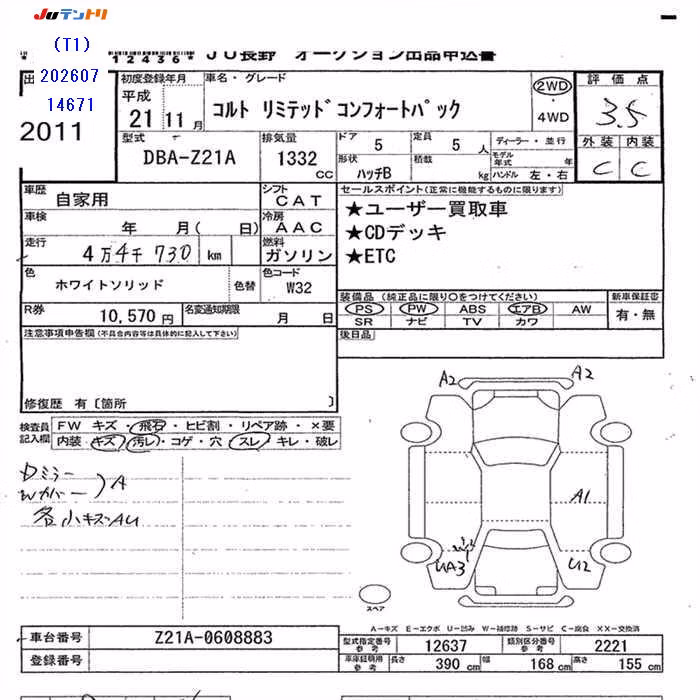 JUテントリ
(T1)
202607
14671
2011
*12436* JU長野 オークション出品申込書
初度登録年月 車名・グレード
平成 21 11月 コルト リミテッド コンフォートパック
2WD
・
4WD
評価点
3.5
外装 内装
C C
型式 排気量 ドア 定員 ディーラー・並行
DBA-Z21A 1332 cc 5 5 人 モデル年式 年
形状 積載
ハッチB kg ハンドル 左・右
車歴 シフト セールスポイント(正常に機能するものに限ります)
自家用 CAT
★ユーザー買取車
車検 冷房
年 月( 日) AAC
★CDデッキ
走行 燃料
4万4千730 km ガソリン
★ETC
色 色コード
ホワイトソリッド 色替 W32
装備品(純正品に限り○をつけてください) 新車保証書
R券 名変通知期限
10,570円 月 日
PS PW ABS エアB AW 有・無
SR ナビ TV カワ
注意事項申告欄(不具合内容等は具体的に記入して下さい)
後日品
修復歴 有〔箇所 〕
検査員記入欄 FW キズ・飛石・ヒビ割・リペア跡・×要
内装・キズ・汚レ・コゲ・穴・スレ・キレ・破レ
Dミラー
Wカバー )A
各小キズAU
A2 A2
A1
W3
UA3 U2
スペア
A-キズ E-エクボ U-凹み W-補修跡 S-サビ C-腐食 XX-交換済
車台番号 Z21A-0608883
型式指定番号 参考 12637 類別区分番号 参考 2221
登録番号
車庫証明用 参考 長さ 390 cm 幅 168 cm 高さ 155 cm